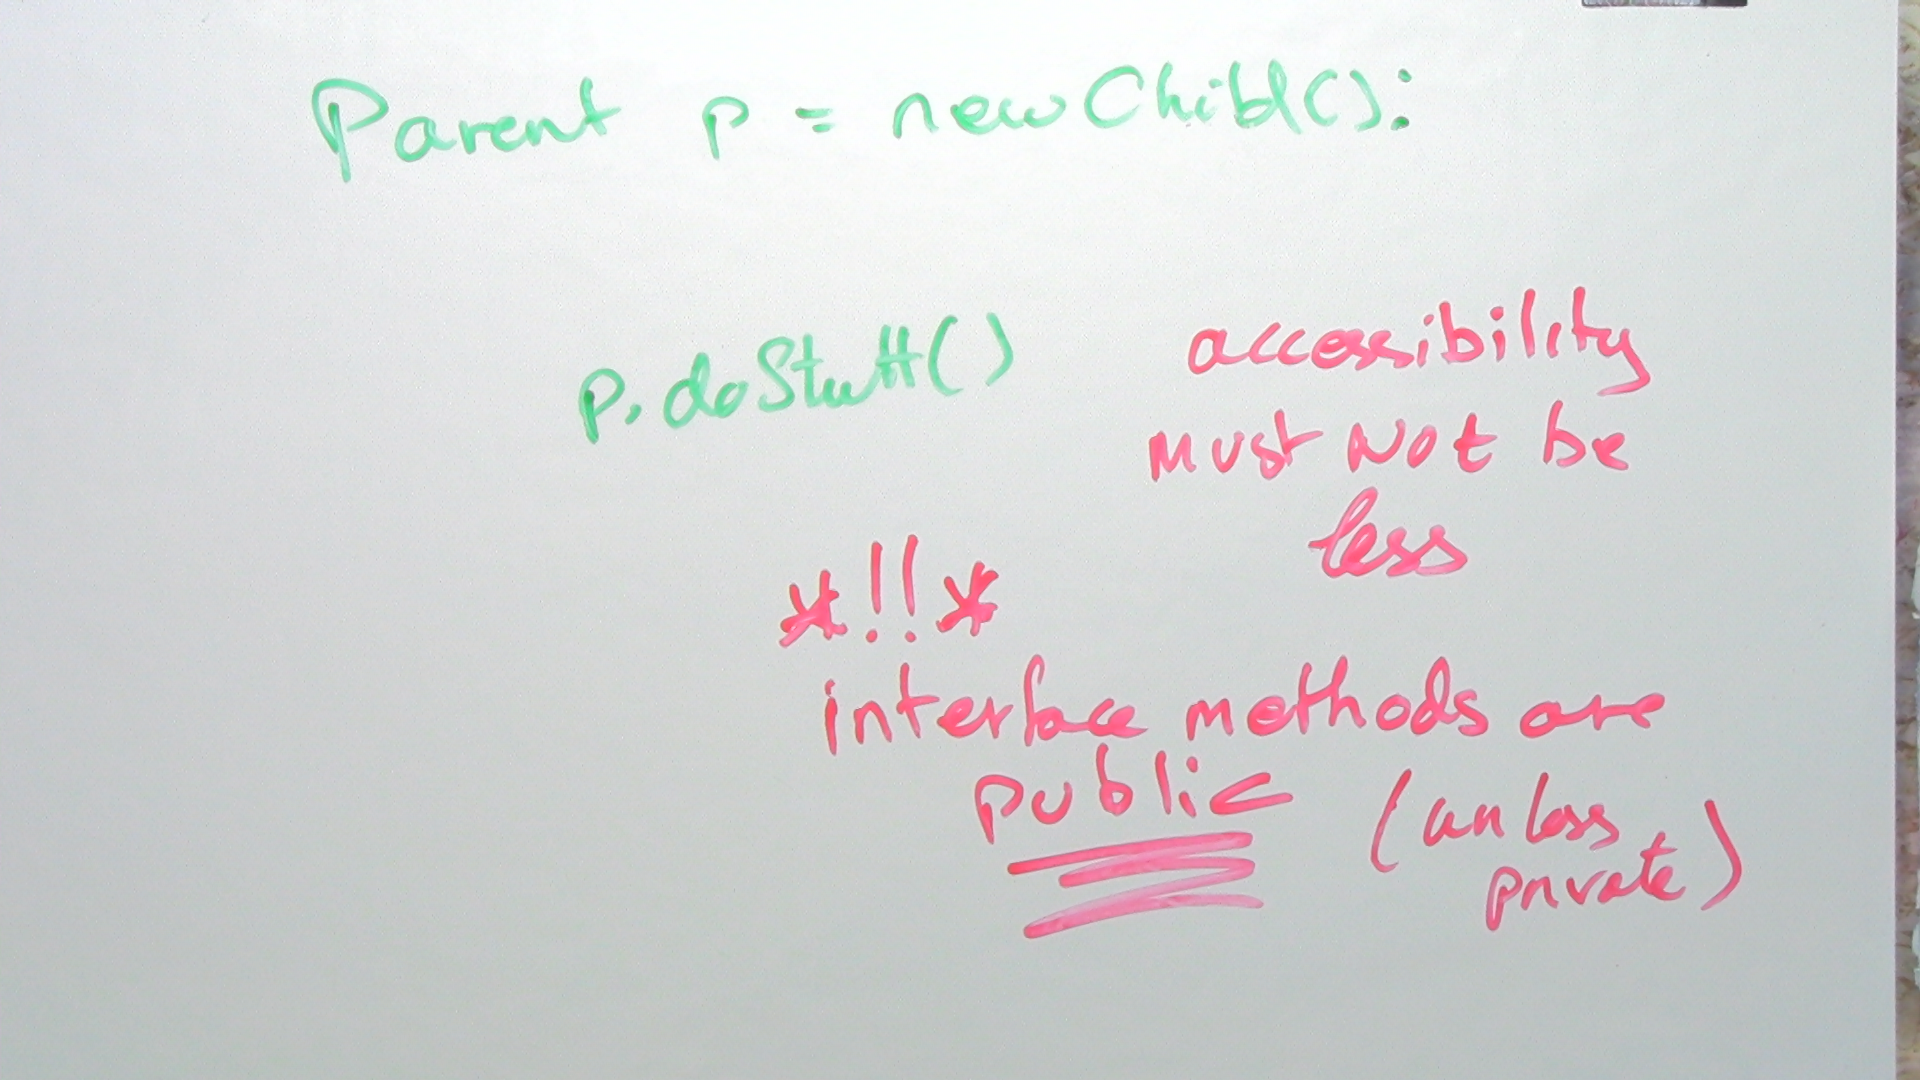 Parent p = new Child():
p.doStuff()
accessibility
must not be
less
*!!*
interface methods are
public (unless
private)